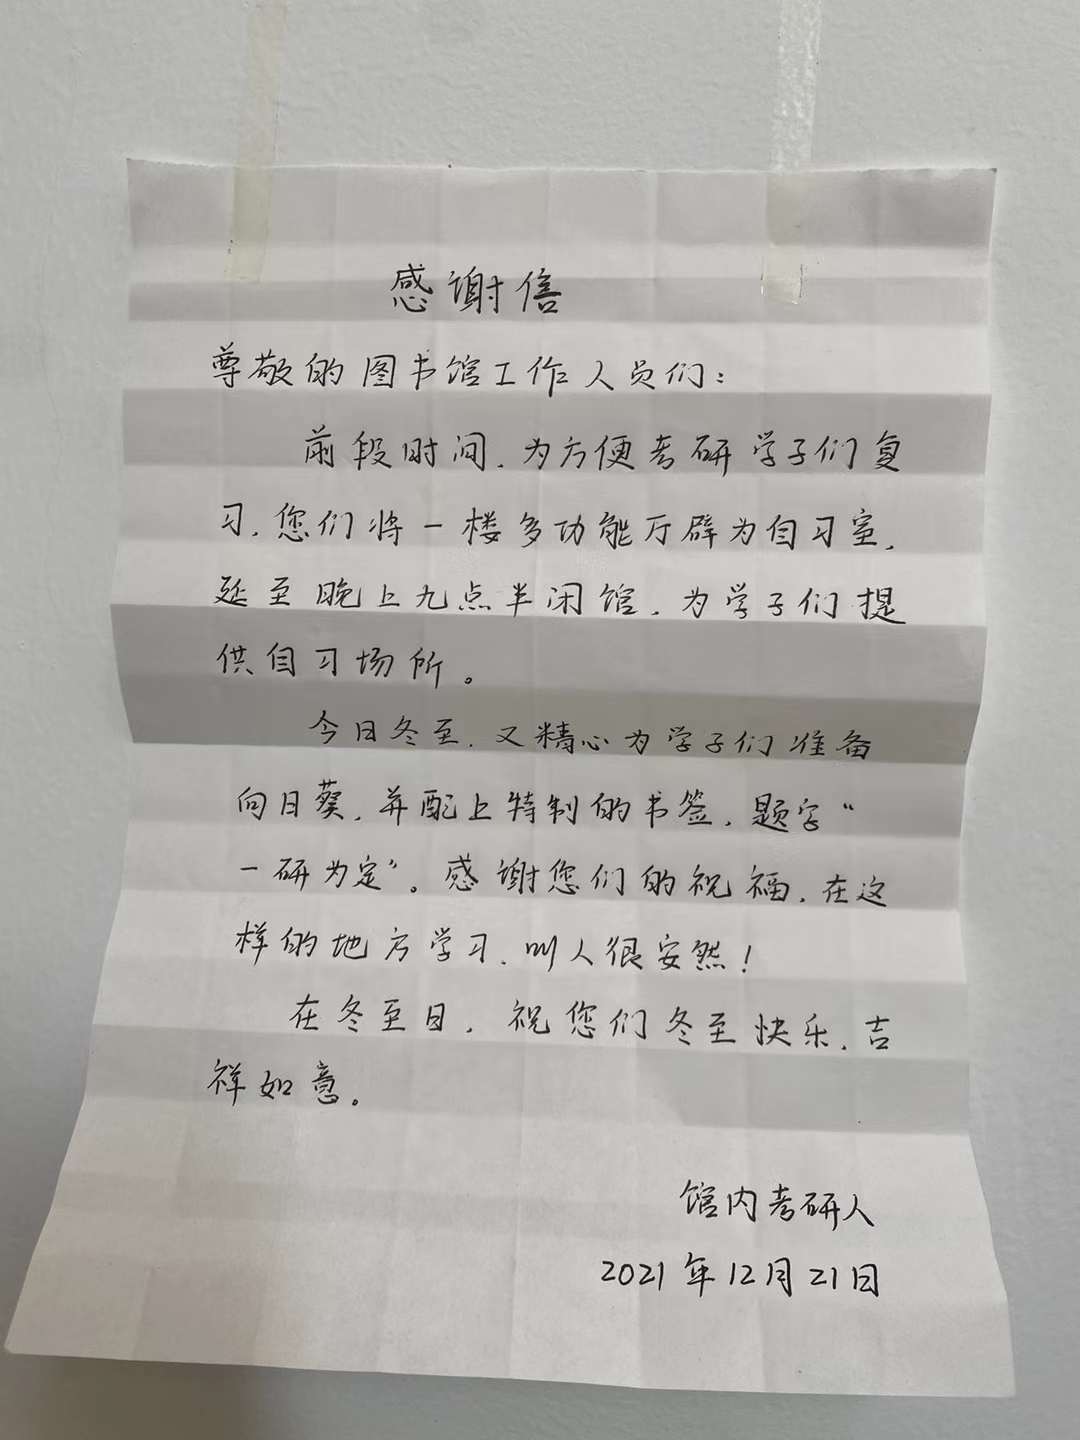 感谢信
尊敬的图书馆工作人员们：
前段时间，为方便考研学子们复
习，您们将一楼多功能厅辟为自习室，
延至晚上九点半闭馆，为学子们提
供自习场所。
今日冬至，又精心为学子们准备
向日葵，并配上特制的书签，题字“
一研为定”。感谢您们的祝福，在这
样的地方学习，叫人很安然！
在冬至日，祝您们冬至快乐，吉
祥如意。
馆内考研人
2021年12月21日